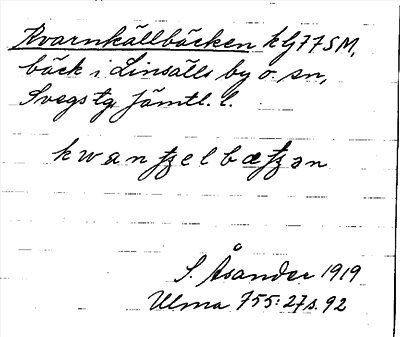 Kvarnkällbäcken k G77SM,
bäck i Linsälls by o. sn,
Svegs tg Jämtl. l.
S. Åsander 1919
Ulma 755:27 s. 92